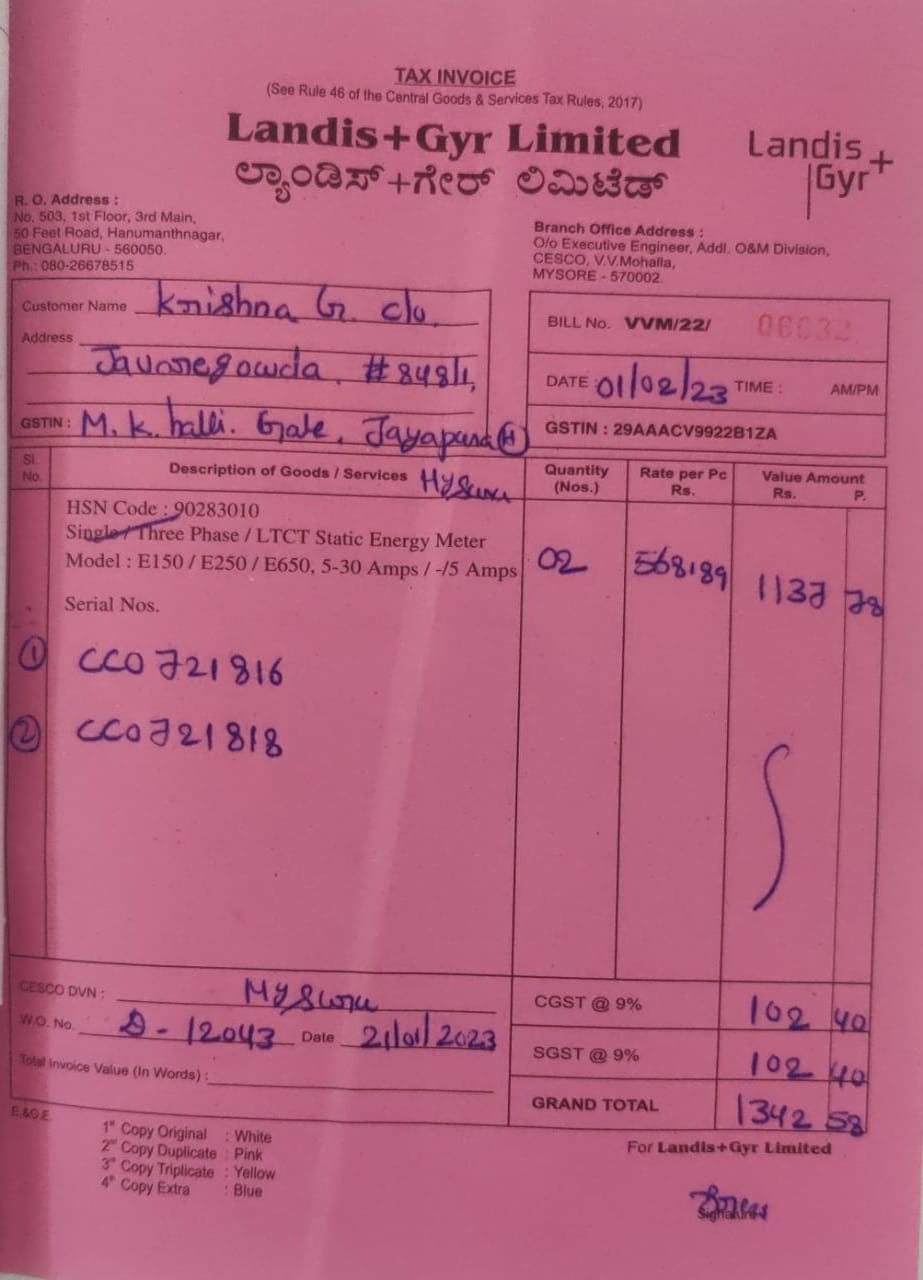 TAX INVOICE
(See Rule 46 of the Central Goods & Services Tax Rules, 2017)
Landis+Gyr Limited
ಲ್ಯಾಂಡಿಸ್+ಗೇರ್ ಲಿಮಿಟೆಡ್
Landis
Gyr+
R. O. Address :
No. 503, 1st Floor, 3rd Main,
50 Feet Road, Hanumanthnagar,
BENGALURU - 560050.
Ph.: 080-26678515
Branch Office Address :
O/o Executive Engineer, Addl. O&M Division,
CESCO, V.V.Mohalla,
MYSORE - 570002.
Customer Name Krishna G. c/o.
Address
Javaregowda. #848/1,
GSTIN : M. K. halli. Gate, Jayapura (H)
BILL No. VVM/22/ 06632
DATE : 01/02/23 TIME : AM/PM
GSTIN : 29AAACV9922B1ZA
Sl. No. Description of Goods / Services Quantity (Nos.) Rate per Pc Rs. Value Amount Rs. P.
Mysuru
HSN Code : 90283010
Single / Three Phase / LTCT Static Energy Meter
Model : E150 / E250 / E650, 5-30 Amps / -/5 Amps 02 568189 1137 78
Serial Nos.
① CC0721816
② CC0721818
CESCO DVN : Mysuru
W.O. No. D-12043 Date 21/01/2023
Total Invoice Value (In Words) :
CGST @ 9% 102 40
SGST @ 9% 102 40
GRAND TOTAL 1342 58
E.&O.E
1st Copy Original : White
2nd Copy Duplicate : Pink
3rd Copy Triplicate : Yellow
4th Copy Extra : Blue
For Landis+Gyr Limited
Signature